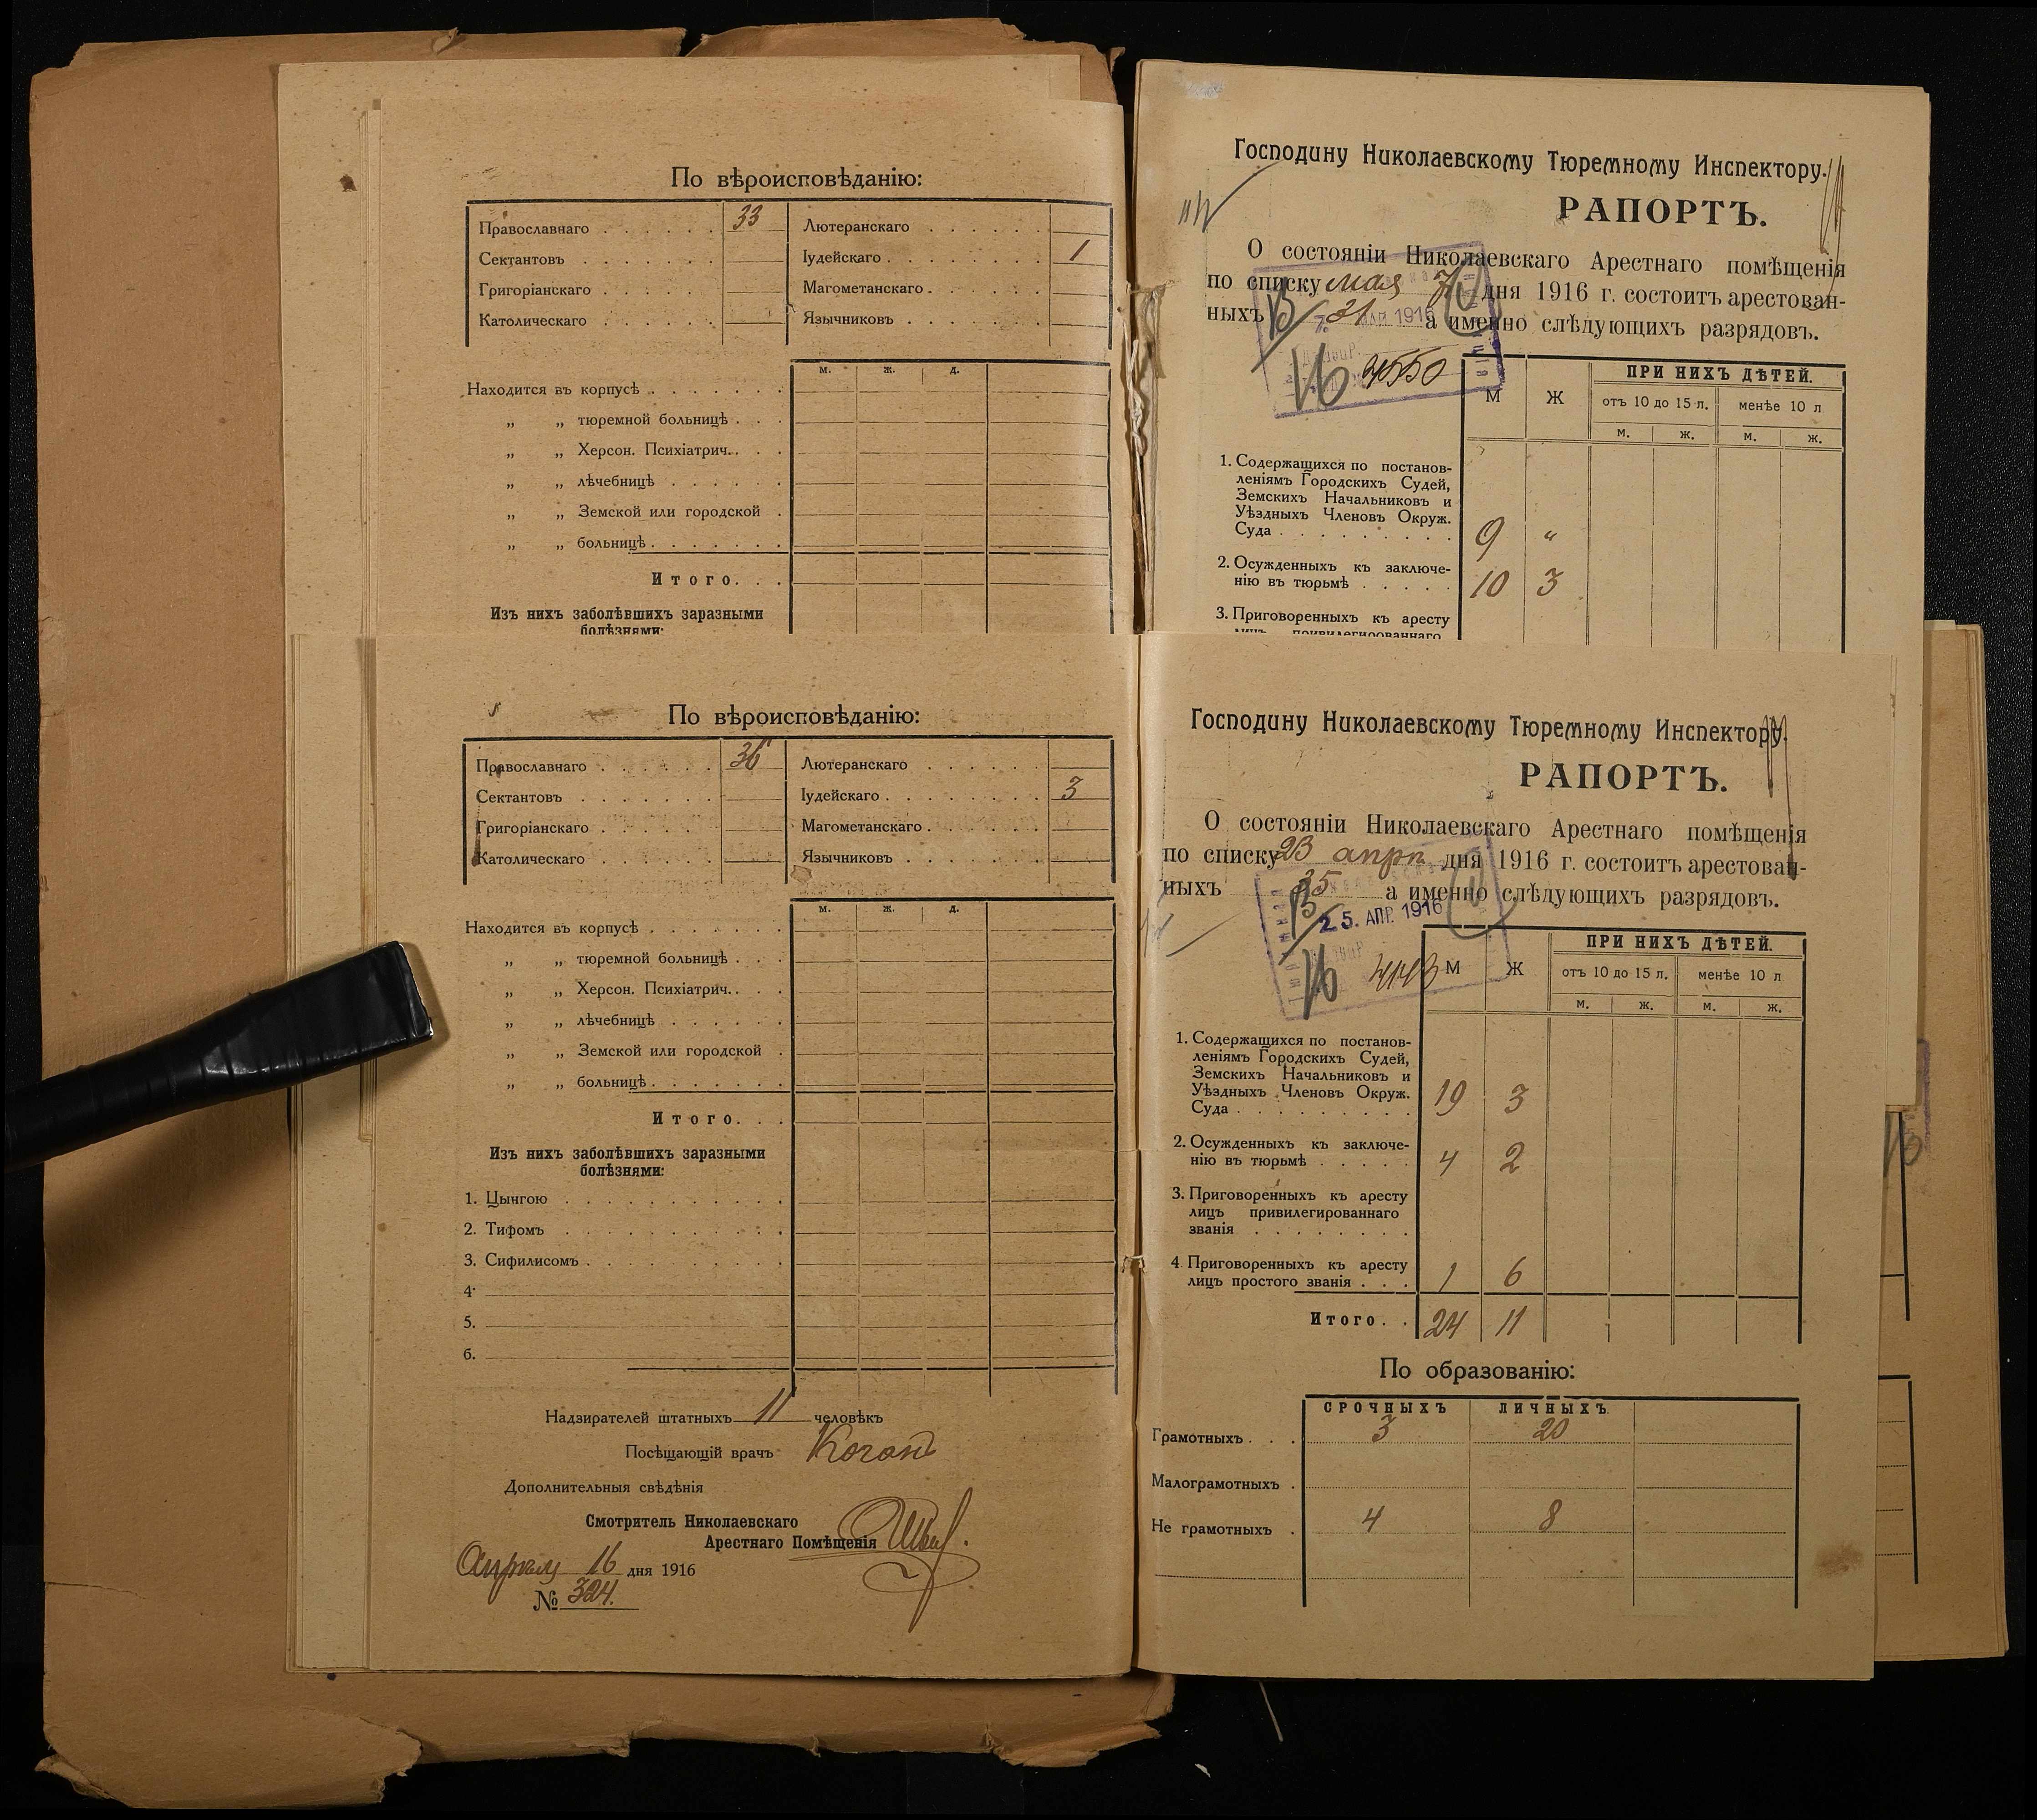 По вѣроисповѣданію:
Православнаго 33 Лютеранскаго
Сектантовъ Іудейскаго 1
Григоріанскаго Магометанскаго
Католическаго Язычниковъ
м. ж. д.
Находится въ корпусѣ
„ „ тюремной больницѣ
„ „ Херсон. Психіатрич.
„ „ лѣчебницѣ
„ „ Земской или городской
„ „ больницѣ
Итого.
Изъ нихъ заболѣвшихъ заразными
болѣзнями:
По вѣроисповѣданію:
Православнаго 36 Лютеранскаго
Сектантовъ Іудейскаго 3
Григоріанскаго Магометанскаго
Католическаго Язычниковъ
м. ж. д.
Находится въ корпусѣ
„ „ тюремной больницѣ
„ „ Херсон. Психіатрич.
„ „ лѣчебницѣ
„ „ Земской или городской
„ „ больницѣ
Итого.
Изъ нихъ заболѣвшихъ заразными
болѣзнями:
1. Цынгою
2. Тифомъ
3. Сифилисомъ
4.
5.
6.
Надзирателей штатныхъ 11 человѣкъ
Посѣщающій врачъ Коганъ
Дополнительныя свѣдѣнія
Смотритель Николаевскаго
Арестнаго Помѣщенія
Апрѣля 16 дня 1916
№ 324.
Господину Николаевскому Тюремному Инспектору.
РАПОРТЪ.
О состояніи Николаевскаго Арестнаго помѣщенія
по списку мая 7 дня 1916 г. состоитъ арестован-
ныхъ 31 а именно слѣдующихъ разрядовъ.
1916
4550
М Ж ПРИ НИХЪ ДѢТЕЙ.
отъ 10 до 15 л. менѣе 10 л
м. ж. м. ж.
1. Содержащихся по постанов-
леніямъ Городскихъ Судей,
Земскихъ Начальниковъ и
Уѣздныхъ Членовъ Окруж.
Суда 9 „
2. Осужденныхъ къ заключе-
нію въ тюрьмѣ 10 3
3. Приговоренныхъ къ аресту
лицъ привилегированнаго
Господину Николаевскому Тюремному Инспектору.
РАПОРТЪ.
О состояніи Николаевскаго Арестнаго помѣщенія
по списку 23 апрѣ дня 1916 г. состоитъ арестован-
ныхъ 35 а именно слѣдующихъ разрядовъ.
25. АПР. 1916
4143
М Ж ПРИ НИХЪ ДѢТЕЙ.
отъ 10 до 15 л. менѣе 10 л
м. ж. м. ж.
1. Содержащихся по постанов-
леніямъ Городскихъ Судей,
Земскихъ Начальниковъ и
Уѣздныхъ Членовъ Окруж.
Суда 19 3
2. Осужденныхъ къ заключе-
нію въ тюрьмѣ 4 2
3. Приговоренныхъ къ аресту
лицъ привилегированнаго
званія
4 Приговоренныхъ къ аресту
лицъ простого званія 1 6
Итого. 24 11
По образованію:
СРОЧНЫХЪ ЛИЧНЫХЪ.
Грамотныхъ 3 20
Малограмотныхъ
Не грамотныхъ 4 8